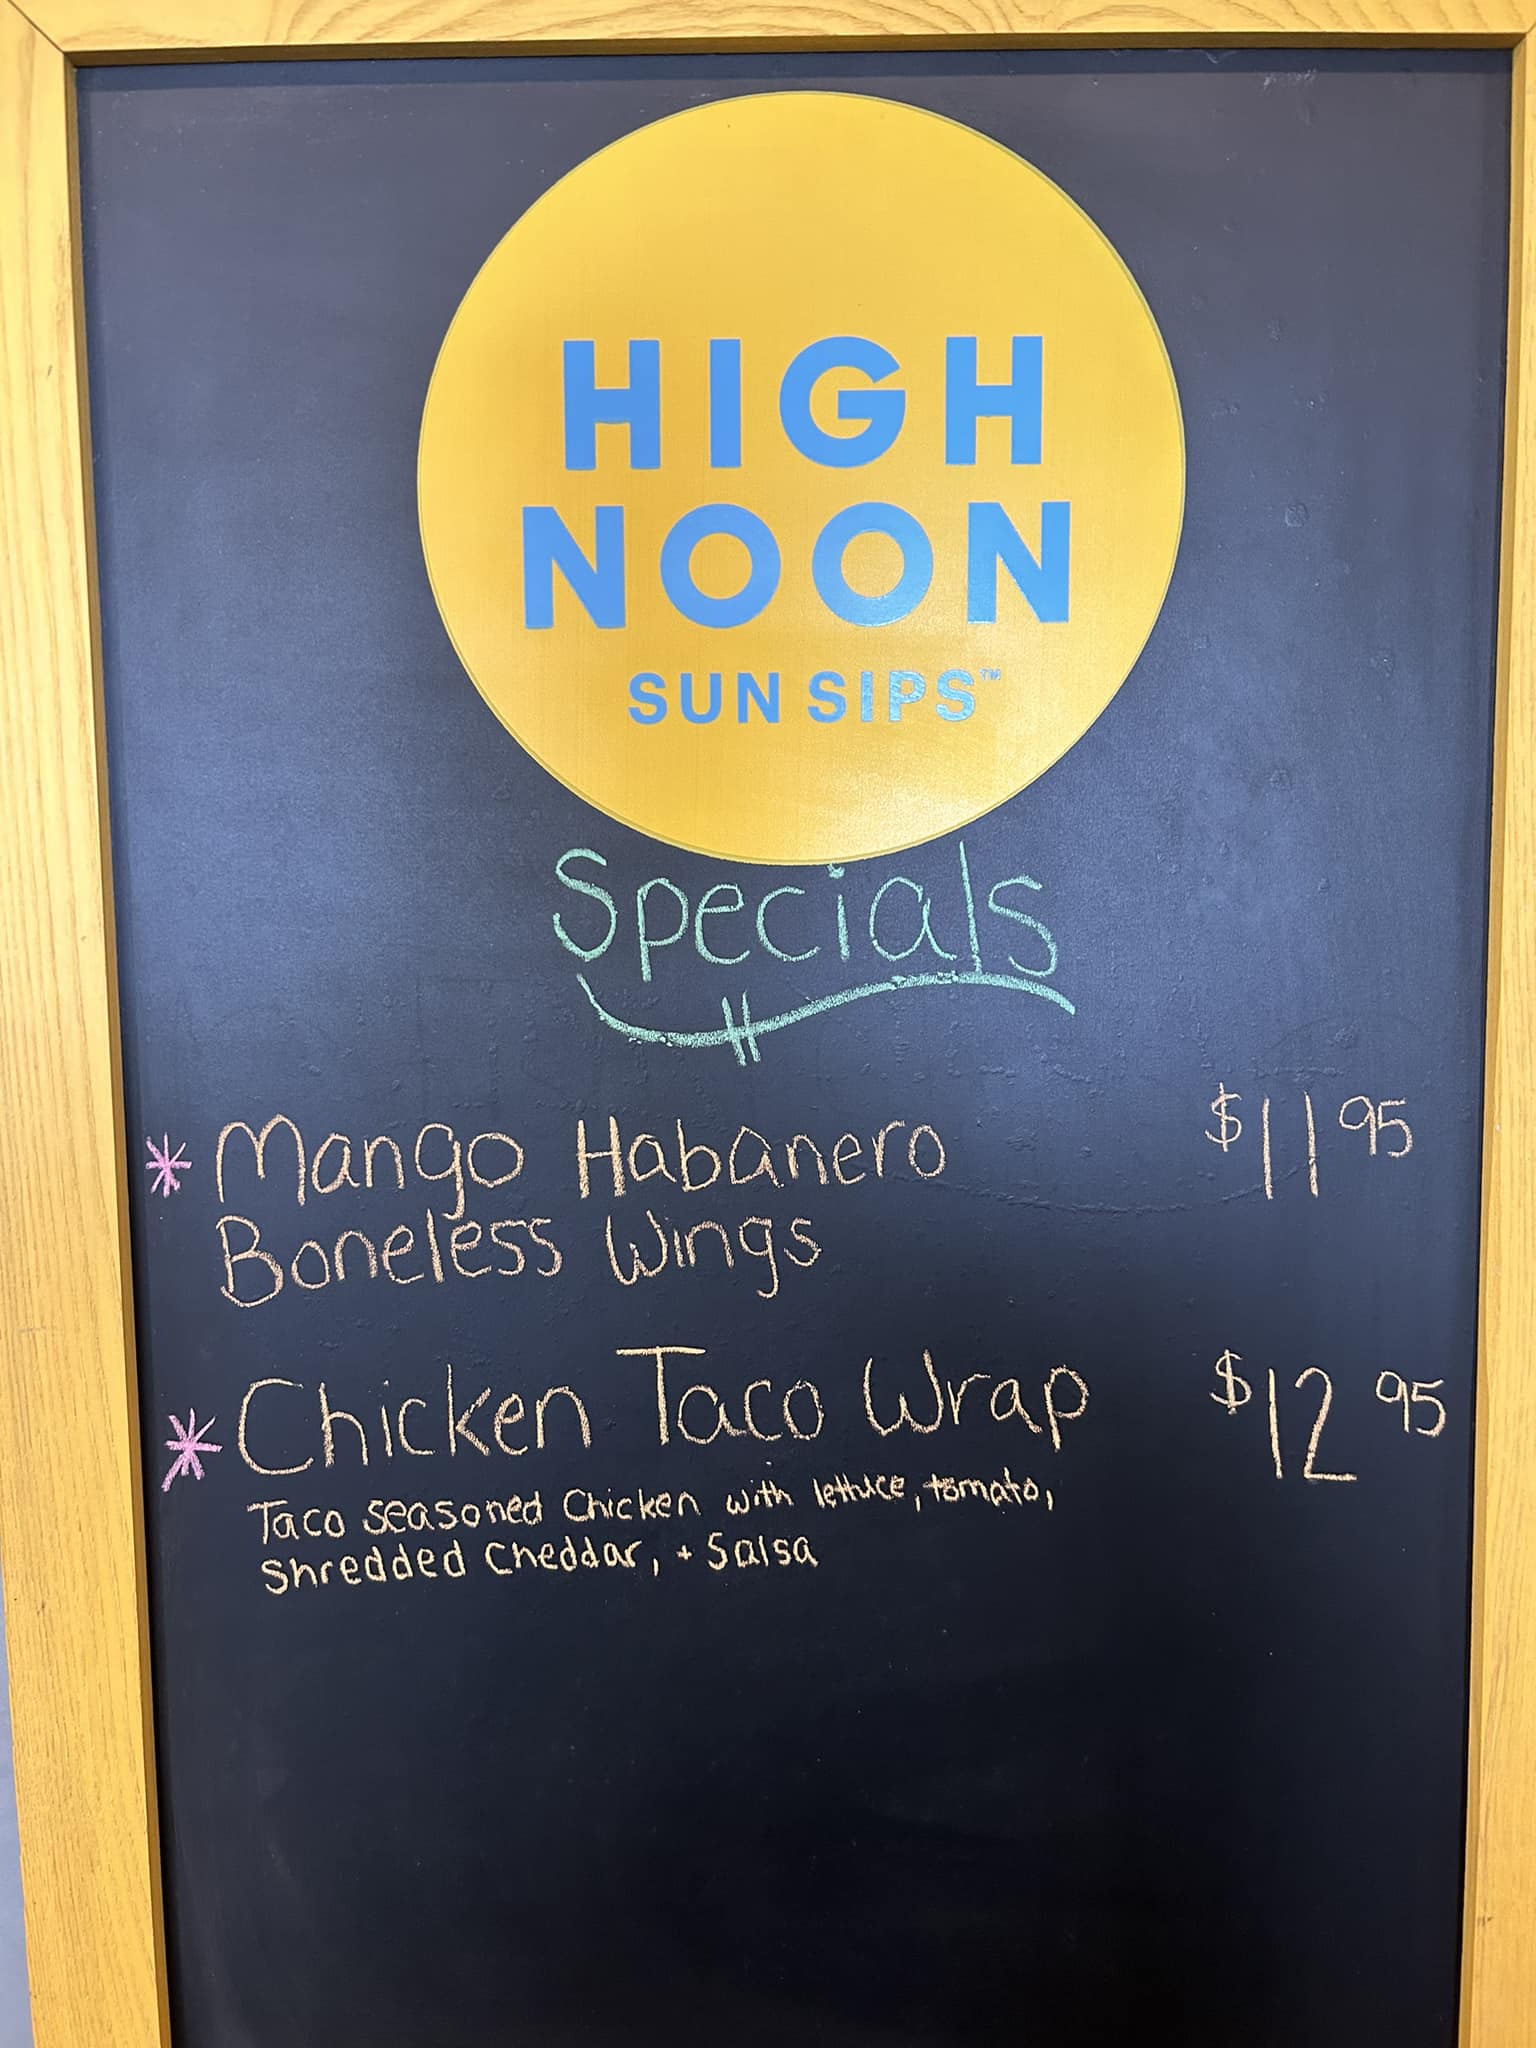 HIGH
NOON
SUN SIPS™
Specials
* Mango Habanero $11 95
Boneless Wings
* Chicken Taco Wrap $12 95
Taco seasoned Chicken with lettuce, tomato,
Shredded Cheddar, + Salsa